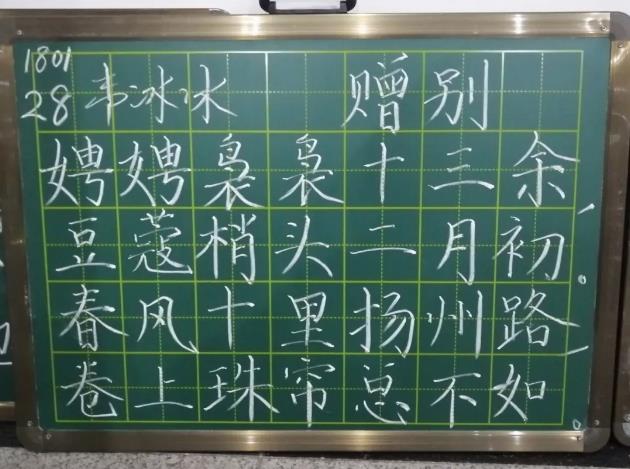 1801
28 韦冰冰 赠别
娉娉袅袅十三余，
豆蔻梢头二月初。
春风十里扬州路，
卷上珠帘总不如。